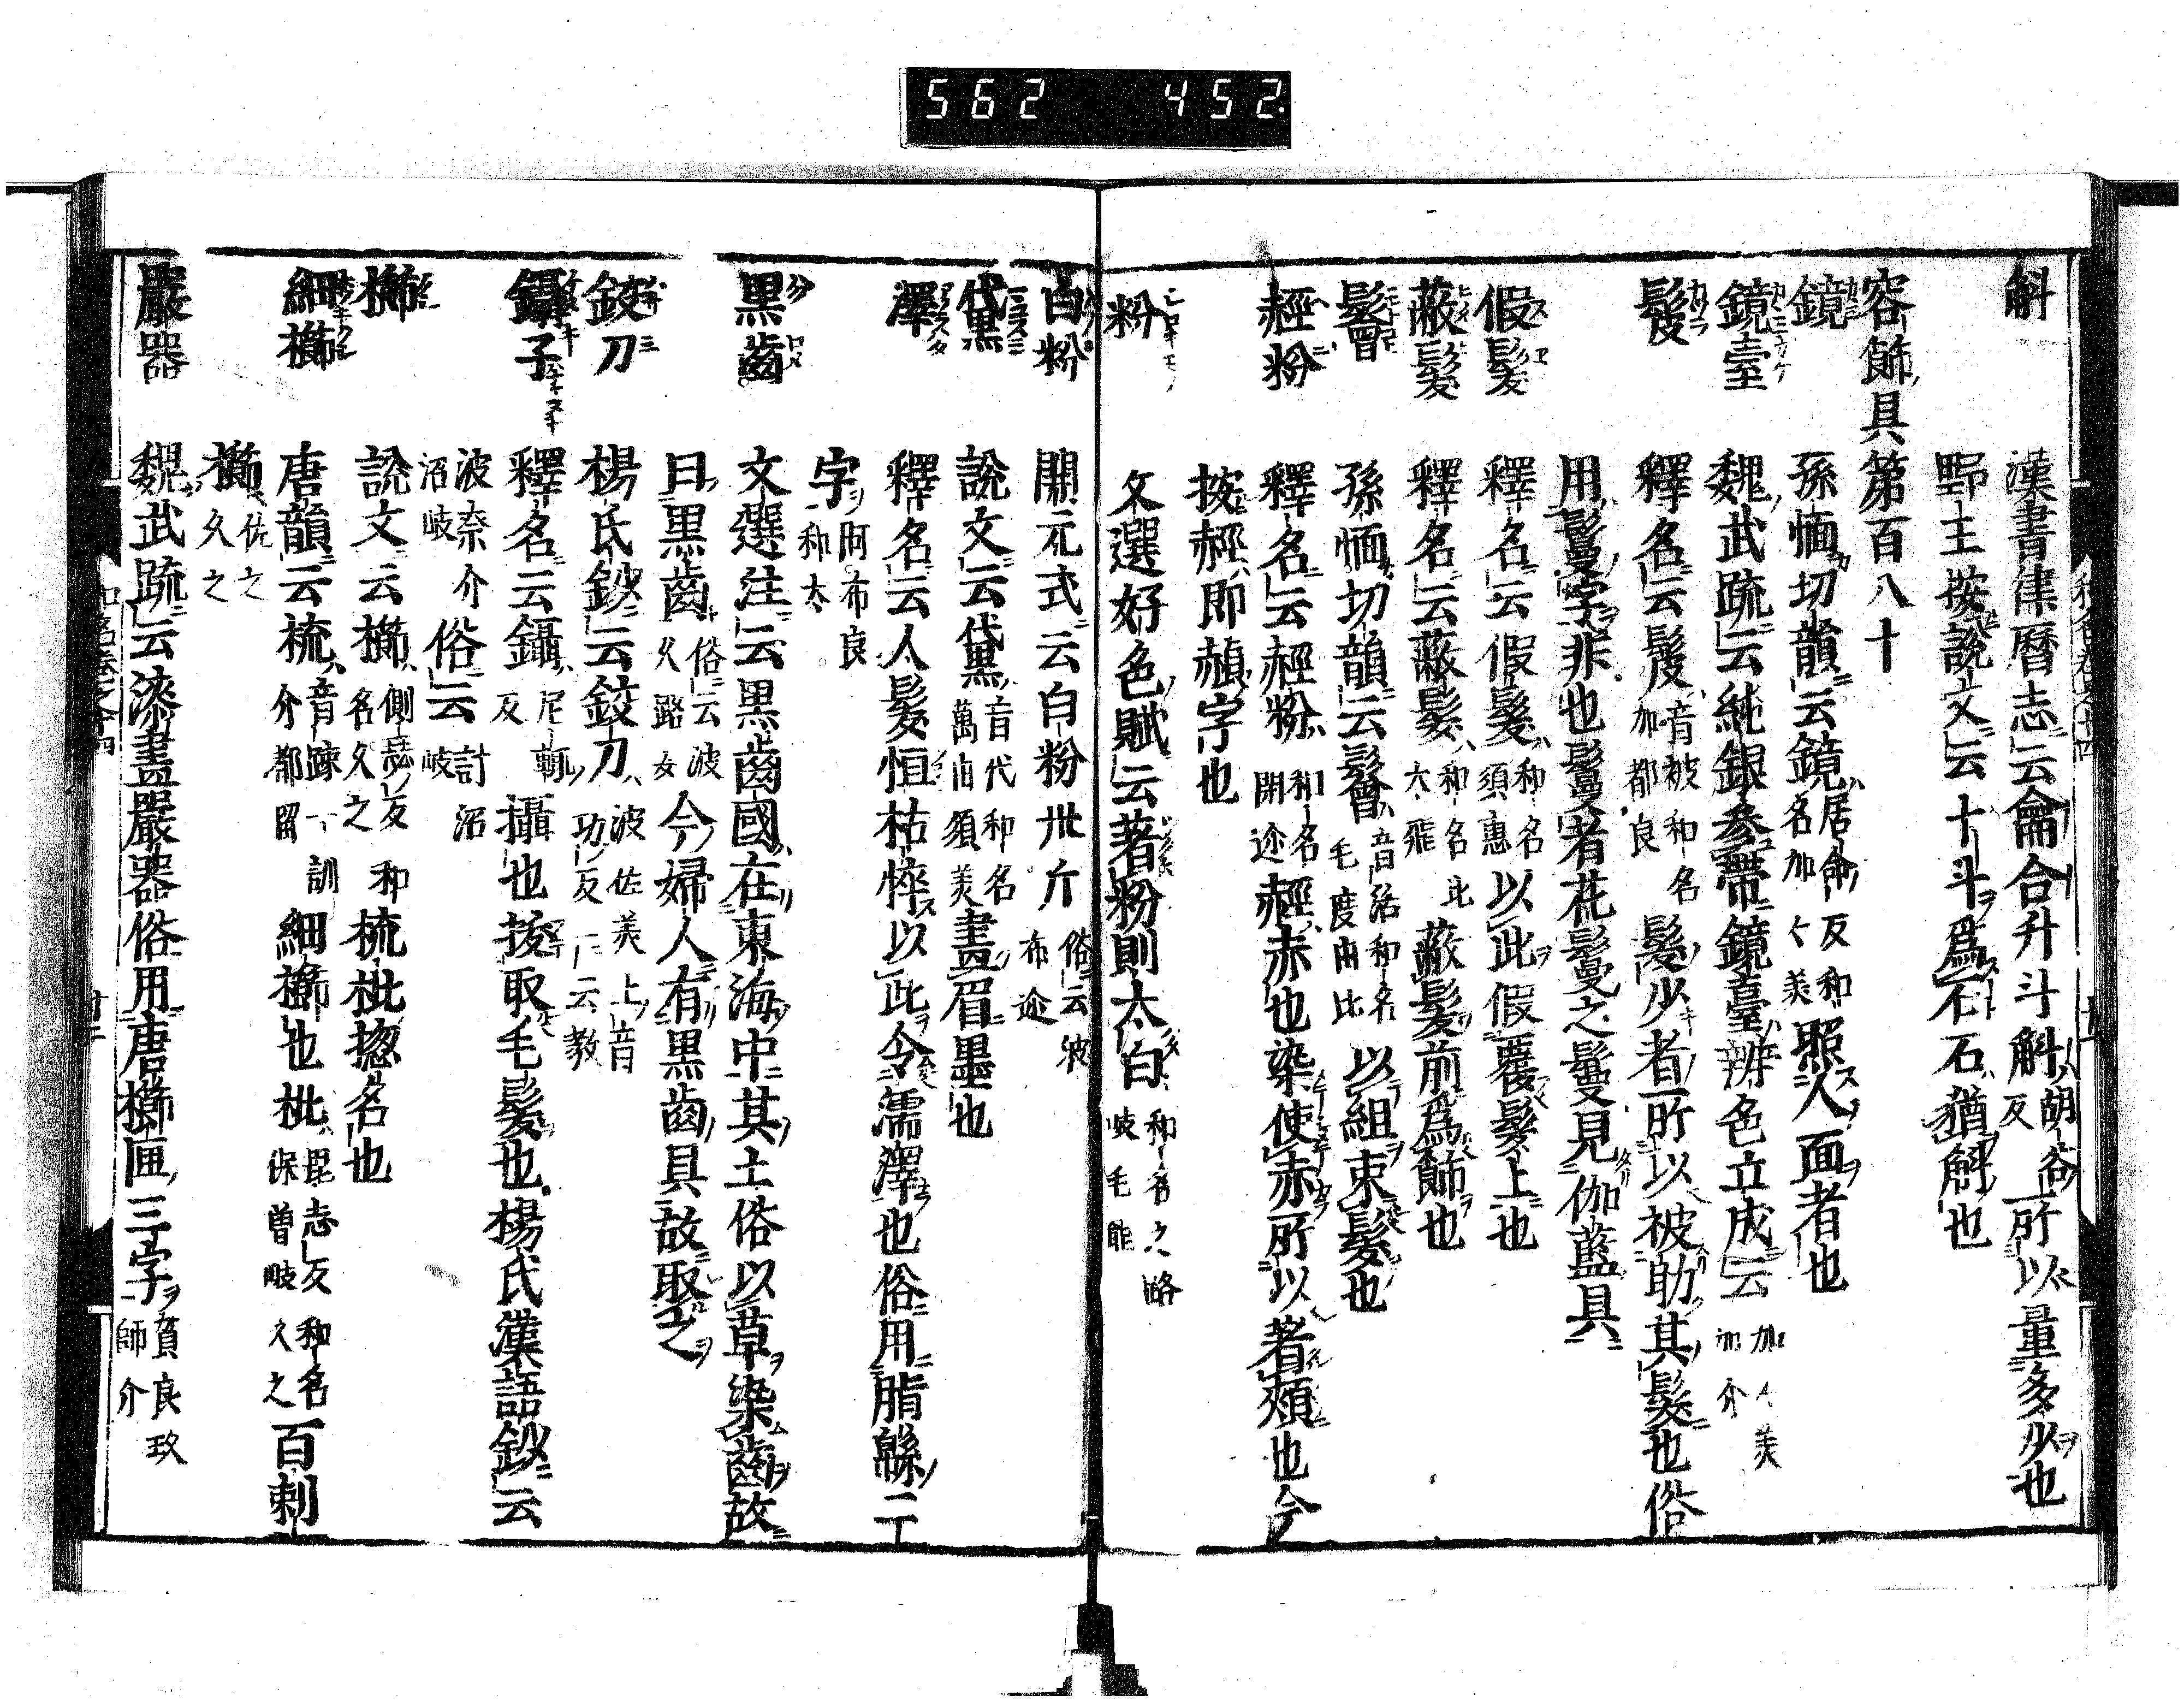 562 452.
斛 漢書律曆志云龠合升斗斛胡谷反所以量多少也
野王按說文云十斗爲石石猶斛也
容飾具第百八十
鏡 孫愐切韻云鏡居命反和名加々美照人面者也
鏡臺 魏武疏云純銀參帶鏡臺辨色立成云加々美加介
髲 釋名云髲音被和名加都良髮少者所以被助其髮也俗
用鬘字非也鬘者花鬘之鬘見伽藍具
假髮 釋名云假髮和名須惠以此假覆髮上也
蔽髮 釋名云蔽髮和名比太飛蔽髮前爲飾也
鬠 孫愐切韻云鬠音活和名毛度由比以組束髮也
䞓粉 釋名云䞓粉和名閇迩䞓赤也染使赤所以著頰也今
按䞓即赬字也
粉 文選好色賦云著粉則太白和名之路岐毛能
白粉 開元式云白粉卅斤俗云波布迩
黛 說文云黛音代和名萬由須美畫眉墨也
澤 釋名云人髮恒枯悴以此令濡澤也俗用脂緜二
字阿布良和太
黒齒 文選注云黒齒國在東海中其土俗以草染齒故
曰黒齒俗云波久路女今婦人有黒齒具故取之
鉸刀 楊氏鈔云鉸刀波佐美上音功反一云教
鑷子 釋名云鑷尼輒反攝也拔取毛髮也楊氏漢語鈔云
波奈介沼岐俗云計沼岐
櫛 說文云櫛側瑟反和名久之梳枇揔名也
細櫛 唐韻云梳音踈訓介都留細櫛也枇毘志反和名保曾岐久之百刺
櫛佐之久之
嚴器 魏武疏云漆畫嚴器俗用唐櫛匣三字賀良玖師介